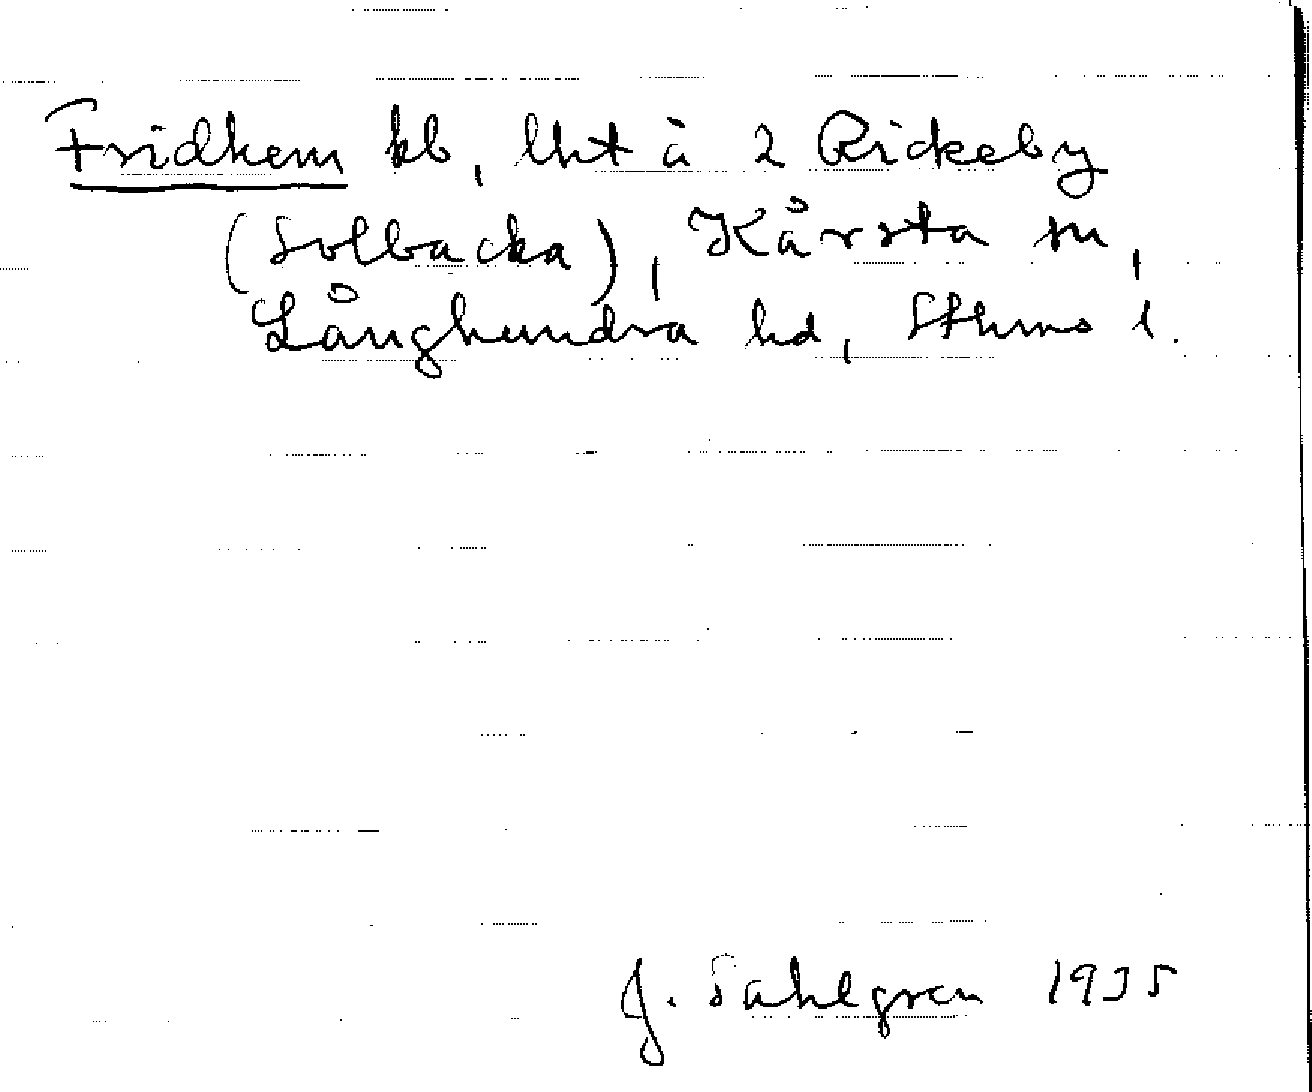 Fridhem kb, lht å 2 Rickeby
(Solbacka), Kårsta sn,
Långhundra hd, Sthms l.
J. Sahlgren 1935